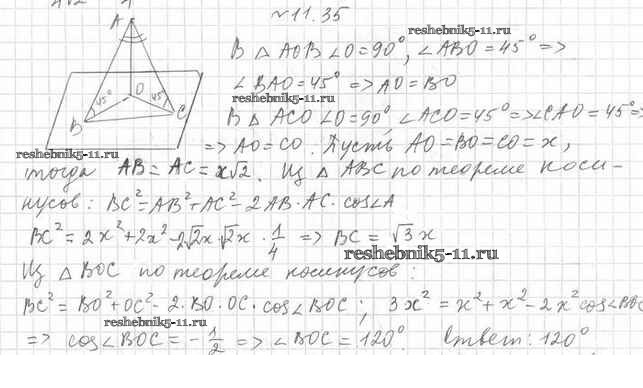 №11.35
reshebnik5-11.ru
A
B
O
C
45°
45°
В △ AOB ∠O=90°, ∠ABO=45° =>
∠BAO=45° => AO=BO
reshebnik5-11.ru
В △ ACO ∠O=90° ∠ACO=45° => ∠CAO=45° =>
=> AO=CO. Пусть AO=BO=CO=x,
reshebnik5-11.ru
тогда AB=AC=x√2. Из △ ABC по теореме коси-
нусов: BC²=AB²+AC²-2AB·AC·cos∠A
BC²=2x²+2x²-2√2x·√2x·1/4 => BC=√3x
reshebnik5-11.ru
Из △ BOC по теореме косинусов:
BC²=BO²+OC²-2·BO·OC·cos∠BOC; 3x²=x²+x²-2x²cos∠BOC
reshebnik5-11.ru
=> cos∠BOC=-1/2 => ∠BOC=120°. Ответ: 120°.